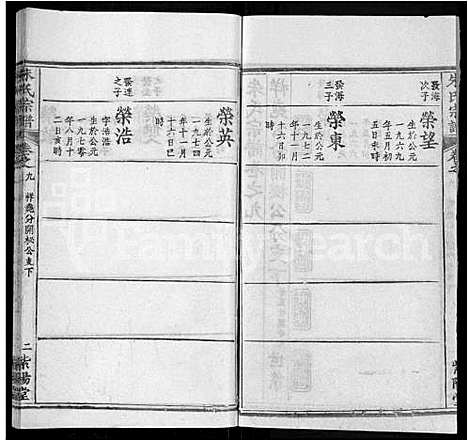 朱氏宗譜
發海
次子
榮望
生於公元
一九六九
年四月初
五日寅時
發海
三子
榮東
生於公元
一九七二
年十一月
十六日卯
時
發達
之子
榮英
生於公元
一九七四
年十一月
十六日巳
時
榮浩
字浩
生於公元
一九七零
年八月十
二日亥時
朱氏宗譜
卷之九
祥應分開松公支下
二
紫陽堂
FamilySearch